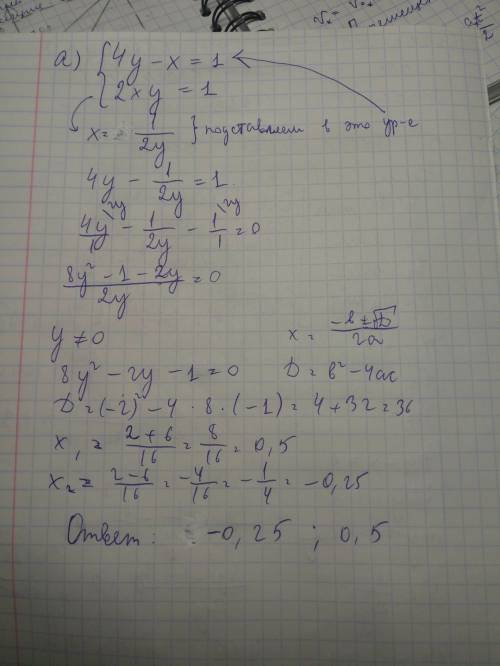 а) { 4y - x = 1
{ 2xy = 1
x = 1/2y } подставляем в это ур-е
4y - 1/2y = 1
4y/1 \2y - 1/2y - 1/1 \2y = 0
8y² - 1 - 2y / 2y = 0
y ≠ 0
x = -b ± √D / 2a
8y² - 2y - 1 = 0 D = b² - 4ac
D = (-2)² - 4 · 8 · (-1) = 4 + 32 = 36
x₁ = 2+6/16 = 8/16 = 0,5
x₂ = 2-6/16 = -4/16 = -1/4 = -0,25
Ответ: -0,25 ; 0,5